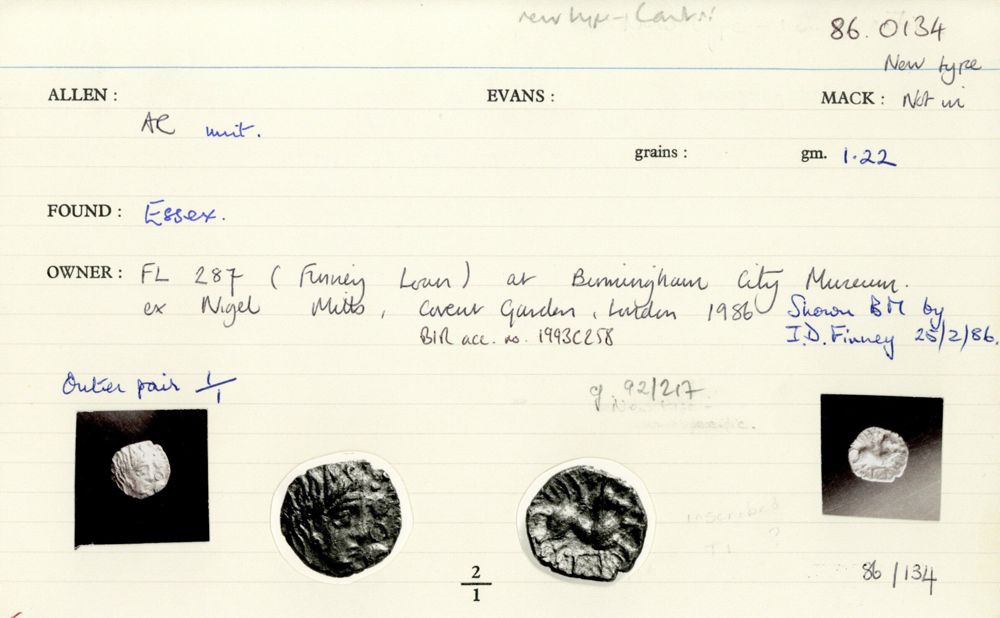 new type - Cont:
86.0134
New type
ALLEN : EVANS : MACK : Not in
AR unit.
grains : gm. 1.22
FOUND : Essex.
OWNER : FL 287 (Finney Loan) at Birmingham City Museum.
ex Nigel Mills, Covent Garden, London 1986 Shown BM by
BIR acc. no. 1993C258 I.D. Finney 25/2/86.
Outer pair 1/1
cf. 92/217
inscribed
T1 ?
2/1
86/134